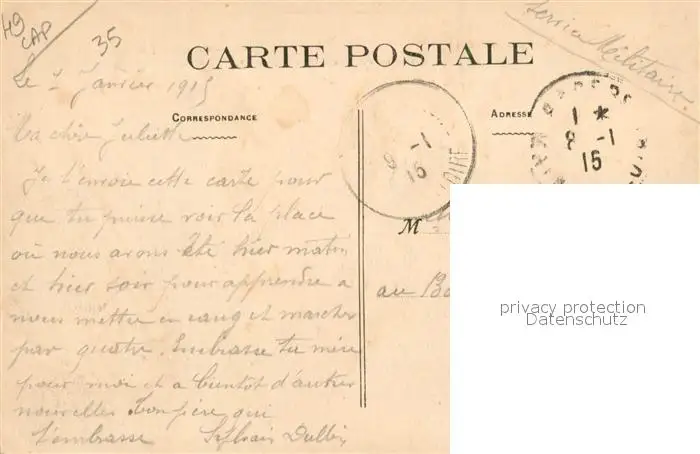 49
CAP
35
Service Militaire
CARTE POSTALE
Le Janvier 1915
CORRESPONDANCE
ADRESSE
Ma chère Juliette
Je t'envoie cette carte pour
que tu puisse voir la place
où nous avons été hier matin
et hier soir pour apprendre a
nous mettre en rang et marcher
par quatre. Embrasse ta mère
pour moi et a bientot d'autres
nouvelles Ton père qui
t'embrasse Sylvain
8 -1
15
OIRE
1 *
8 -1
15
M
au Bo
privacy protection
Datenschutz